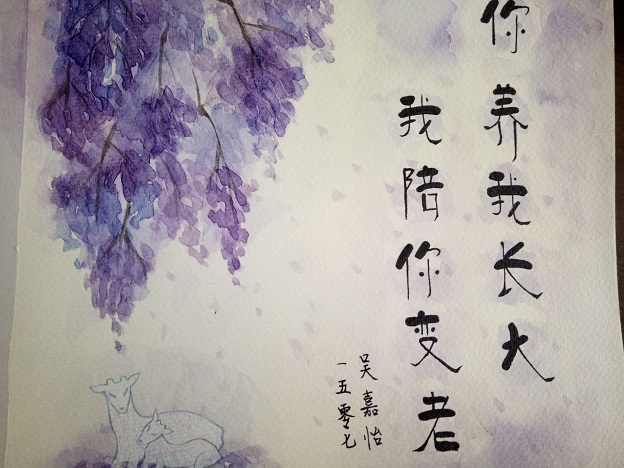 你养我长大
我陪你变老
吴嘉怡
一五零七